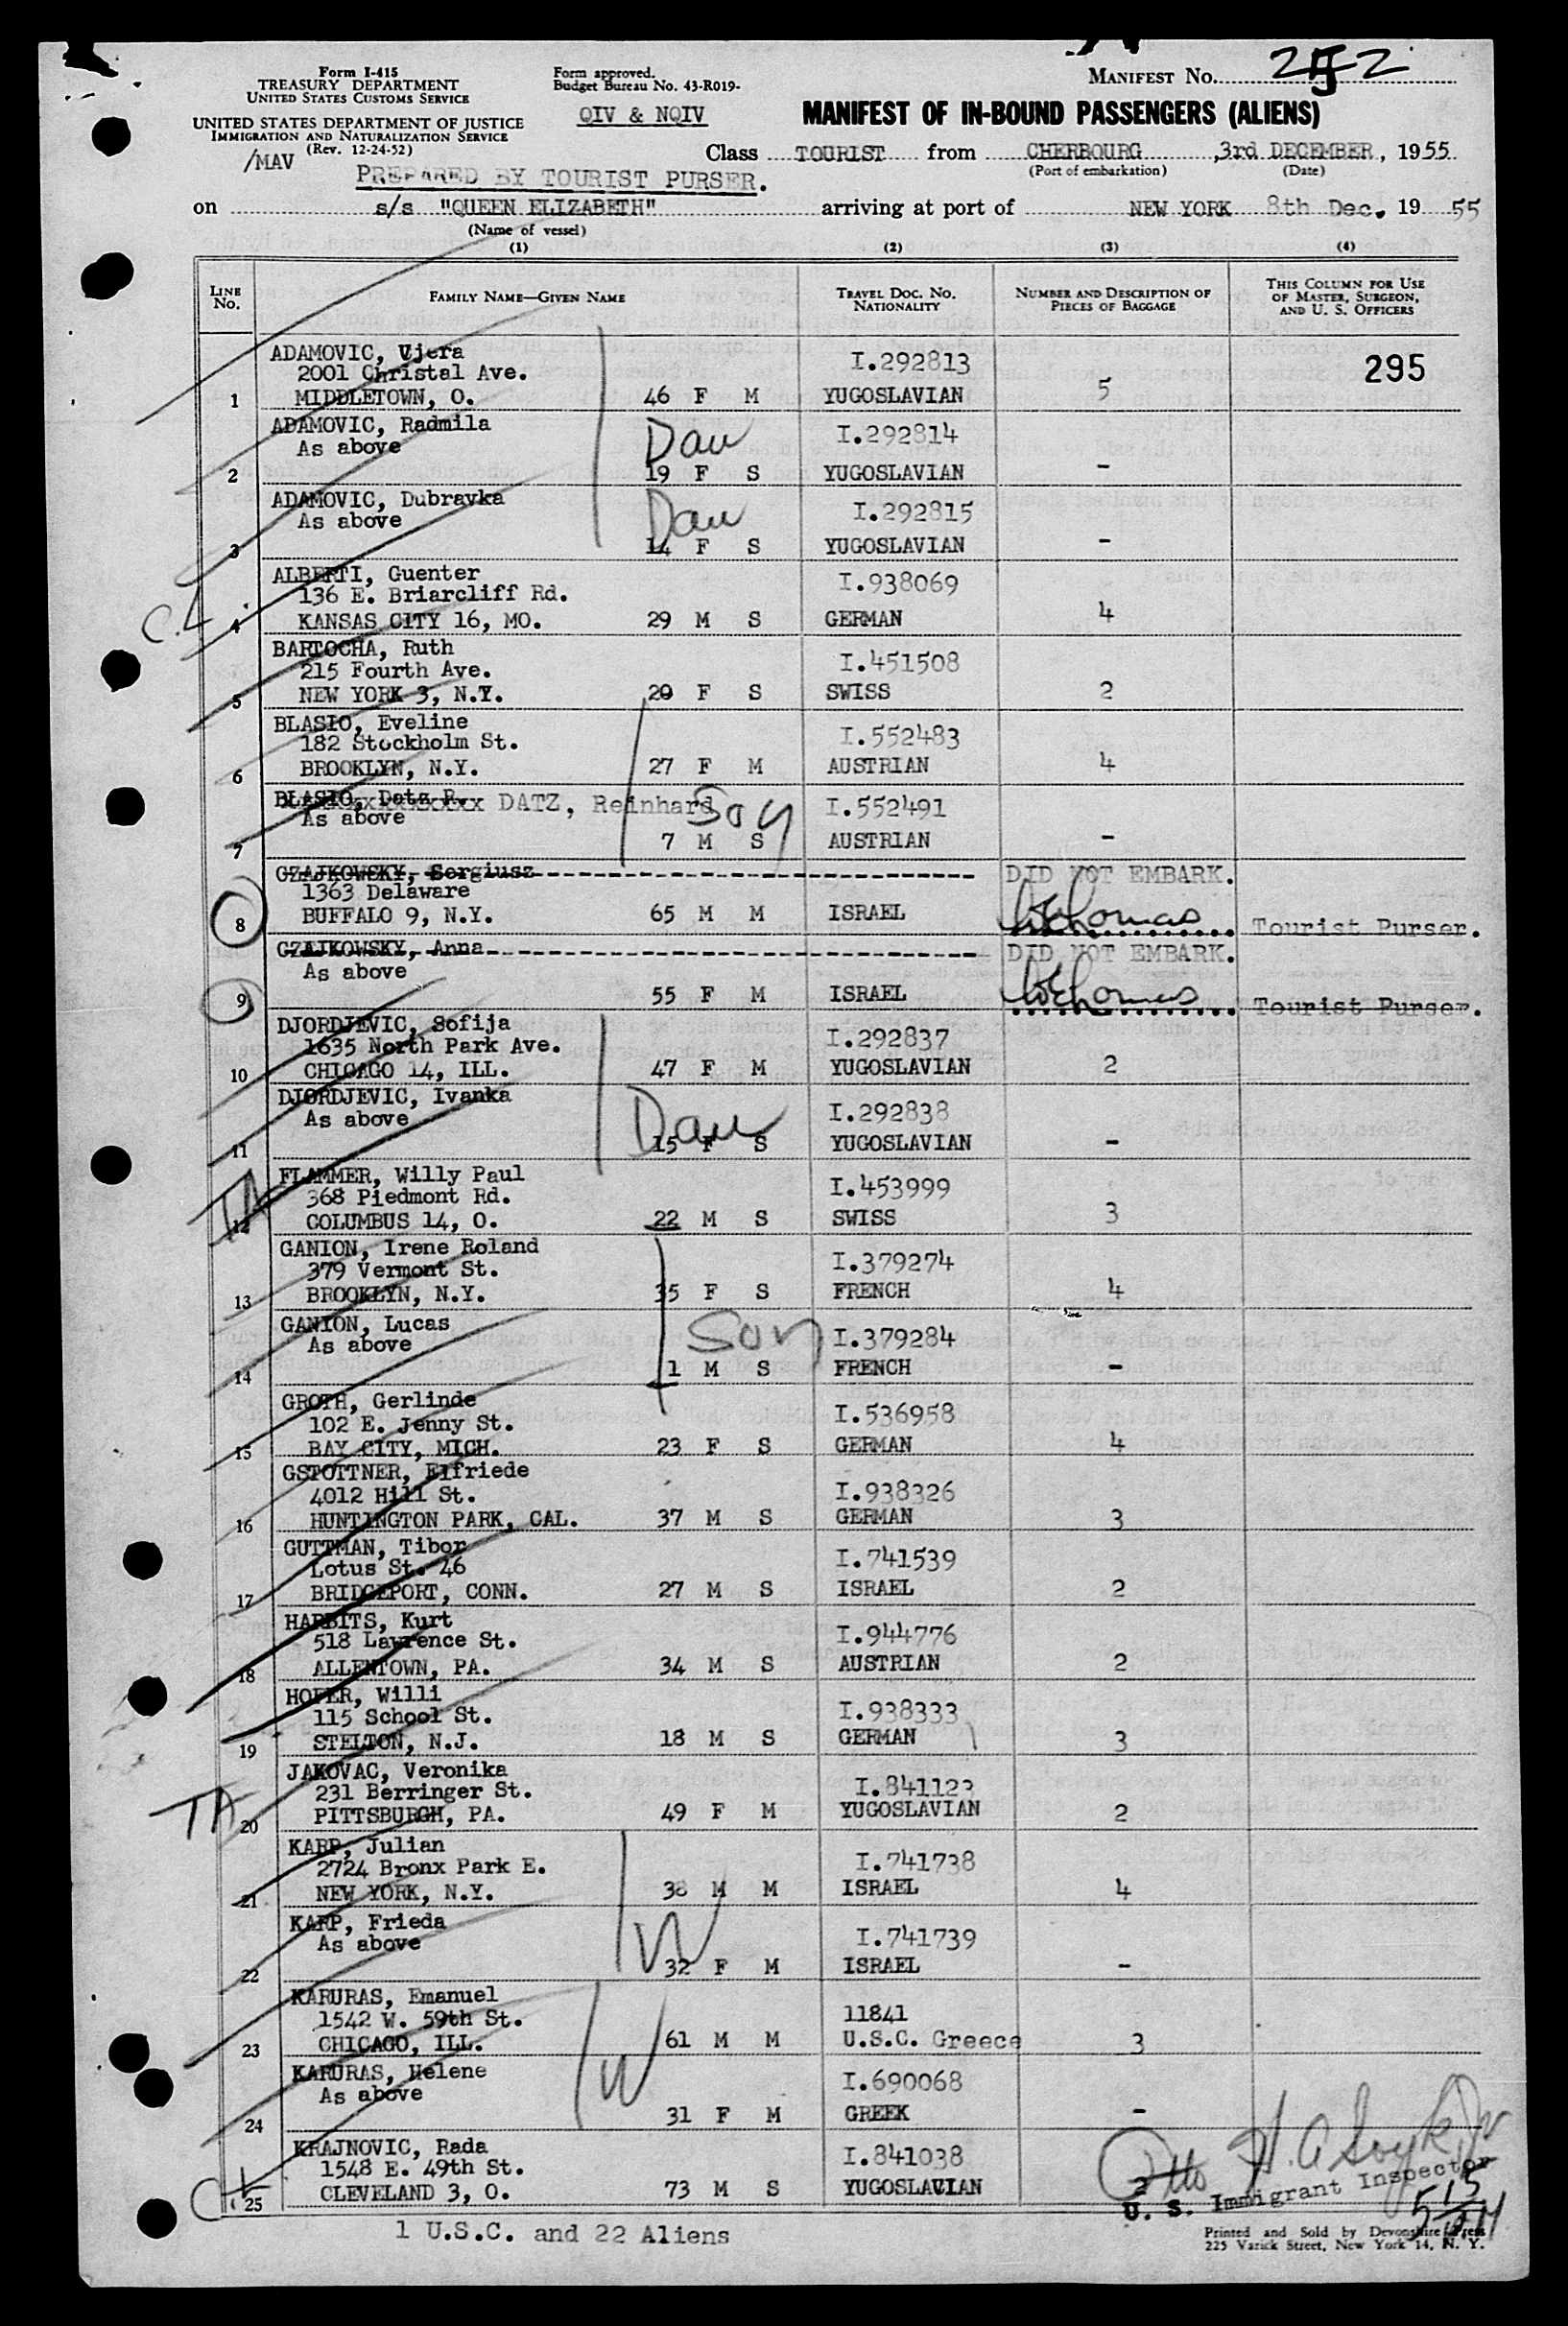 Form I-415
TREASURY DEPARTMENT
UNITED STATES CUSTOMS SERVICE
UNITED STATES DEPARTMENT OF JUSTICE
IMMIGRATION AND NATURALIZATION SERVICE
(Rev. 12-24-52)
/MAV
Form approved.
Budget Bureau No. 43-R019-
QIV & NQIV
MANIFEST No.
MANIFEST OF IN-BOUND PASSENGERS (ALIENS)
Class TOURIST from CHERBOURG, 3rd DECEMBER, 1955
(Port of embarkation) (Date)
PREPARED BY TOURIST PURSER.
on s/s "QUEEN ELIZABETH" arriving at port of NEW YORK 8th Dec. 19 55
(Name of vessel)
(1) (2) (3) (4)
LINE No. FAMILY NAME—GIVEN NAME TRAVEL DOC. No. NATIONALITY NUMBER AND DESCRIPTION OF PIECES OF BAGGAGE THIS COLUMN FOR USE OF MASTER, SURGEON, AND U. S. OFFICERS
ADAMOVIC, Vjera I.292813 295
2001 Christal Ave.
1 MIDDLETOWN, O. 46 F M YUGOSLAVIAN 5
ADAMOVIC, Radmila Dau I.292814
As above
2 19 F S YUGOSLAVIAN -
ADAMOVIC, Dubravka Dau I.292815
As above
3 14 F S YUGOSLAVIAN -
ALBERTI, Guenter I.938069
136 E. Briarcliff Rd.
C.L. 4 KANSAS CITY 16, MO. 29 M S GERMAN 4
BARTOCHA, Ruth I.451508
215 Fourth Ave.
5 NEW YORK 3, N.Y. 20 F S SWISS 2
BLASIO, Eveline I.552483
182 Stockholm St.
6 BROOKLYN, N.Y. 27 F M AUSTRIAN 4
BLASIO, Datz R. DATZ, Reinhard Son I.552491
As above
7 7 M S AUSTRIAN -
CZAJKOWSKY, Sergiusz DID NOT EMBARK.
1363 Delaware
8 BUFFALO 9, N.Y. 65 M M ISRAEL Tourist Purser.
CZAJKOWSKY, Anna DID NOT EMBARK.
As above
9 55 F M ISRAEL Tourist Purser.
DJORDJEVIC, Sofija I.292837
1635 North Park Ave.
10 CHICAGO 14, ILL. 47 F M YUGOSLAVIAN 2
DJORDJEVIC, Ivanka Dau I.292838
As above
11 15 F S YUGOSLAVIAN -
FLAMMER, Willy Paul I.453999
368 Piedmont Rd.
TA 12 COLUMBUS 14, O. 22 M S SWISS 3
GANION, Irene Roland I.379274
379 Vermont St.
13 BROOKLYN, N.Y. 35 F S FRENCH 4
GANION, Lucas Son I.379284
As above
14 1 M S FRENCH -
GROTH, Gerlinde I.536958
102 E. Jenny St.
15 BAY CITY, MICH. 23 F S GERMAN 4
GSTOTTNER, Elfriede I.938326
4012 Hill St.
16 HUNTINGTON PARK, CAL. 37 M S GERMAN 3
GUTTMAN, Tibor I.741539
Lotus St. 46
17 BRIDGEPORT, CONN. 27 M S ISRAEL 2
HARBITS, Kurt I.944776
518 Lawrence St.
18 ALLENTOWN, PA. 34 M S AUSTRIAN 2
HOFER, Willi I.938333
115 School St.
19 STELTON, N.J. 18 M S GERMAN 3
JAKOVAC, Veronika I.841123
231 Berringer St.
TA 20 PITTSBURGH, PA. 49 F M YUGOSLAVIAN 2
KARP, Julian I.741738
2724 Bronx Park E.
21 NEW YORK, N.Y. 38 M M ISRAEL 4
KARP, Frieda W I.741739
As above
22 32 F M ISRAEL -
KARURAS, Emanuel 11841
1542 W. 59th St.
23 CHICAGO, ILL. 61 M M U.S.C. Greece 3
KARURAS, Helene W I.690068
As above
24 31 F M GREEK -
KRAJNOVIC, Rada I.841038
1548 E. 49th St.
25 CLEVELAND 3, O. 73 M S YUGOSLAVIAN 2
U. S. Immigrant Inspector
1 U.S.C. and 22 Aliens
Printed and Sold by Devonshire Press
225 Varick Street, New York 14, N. Y.